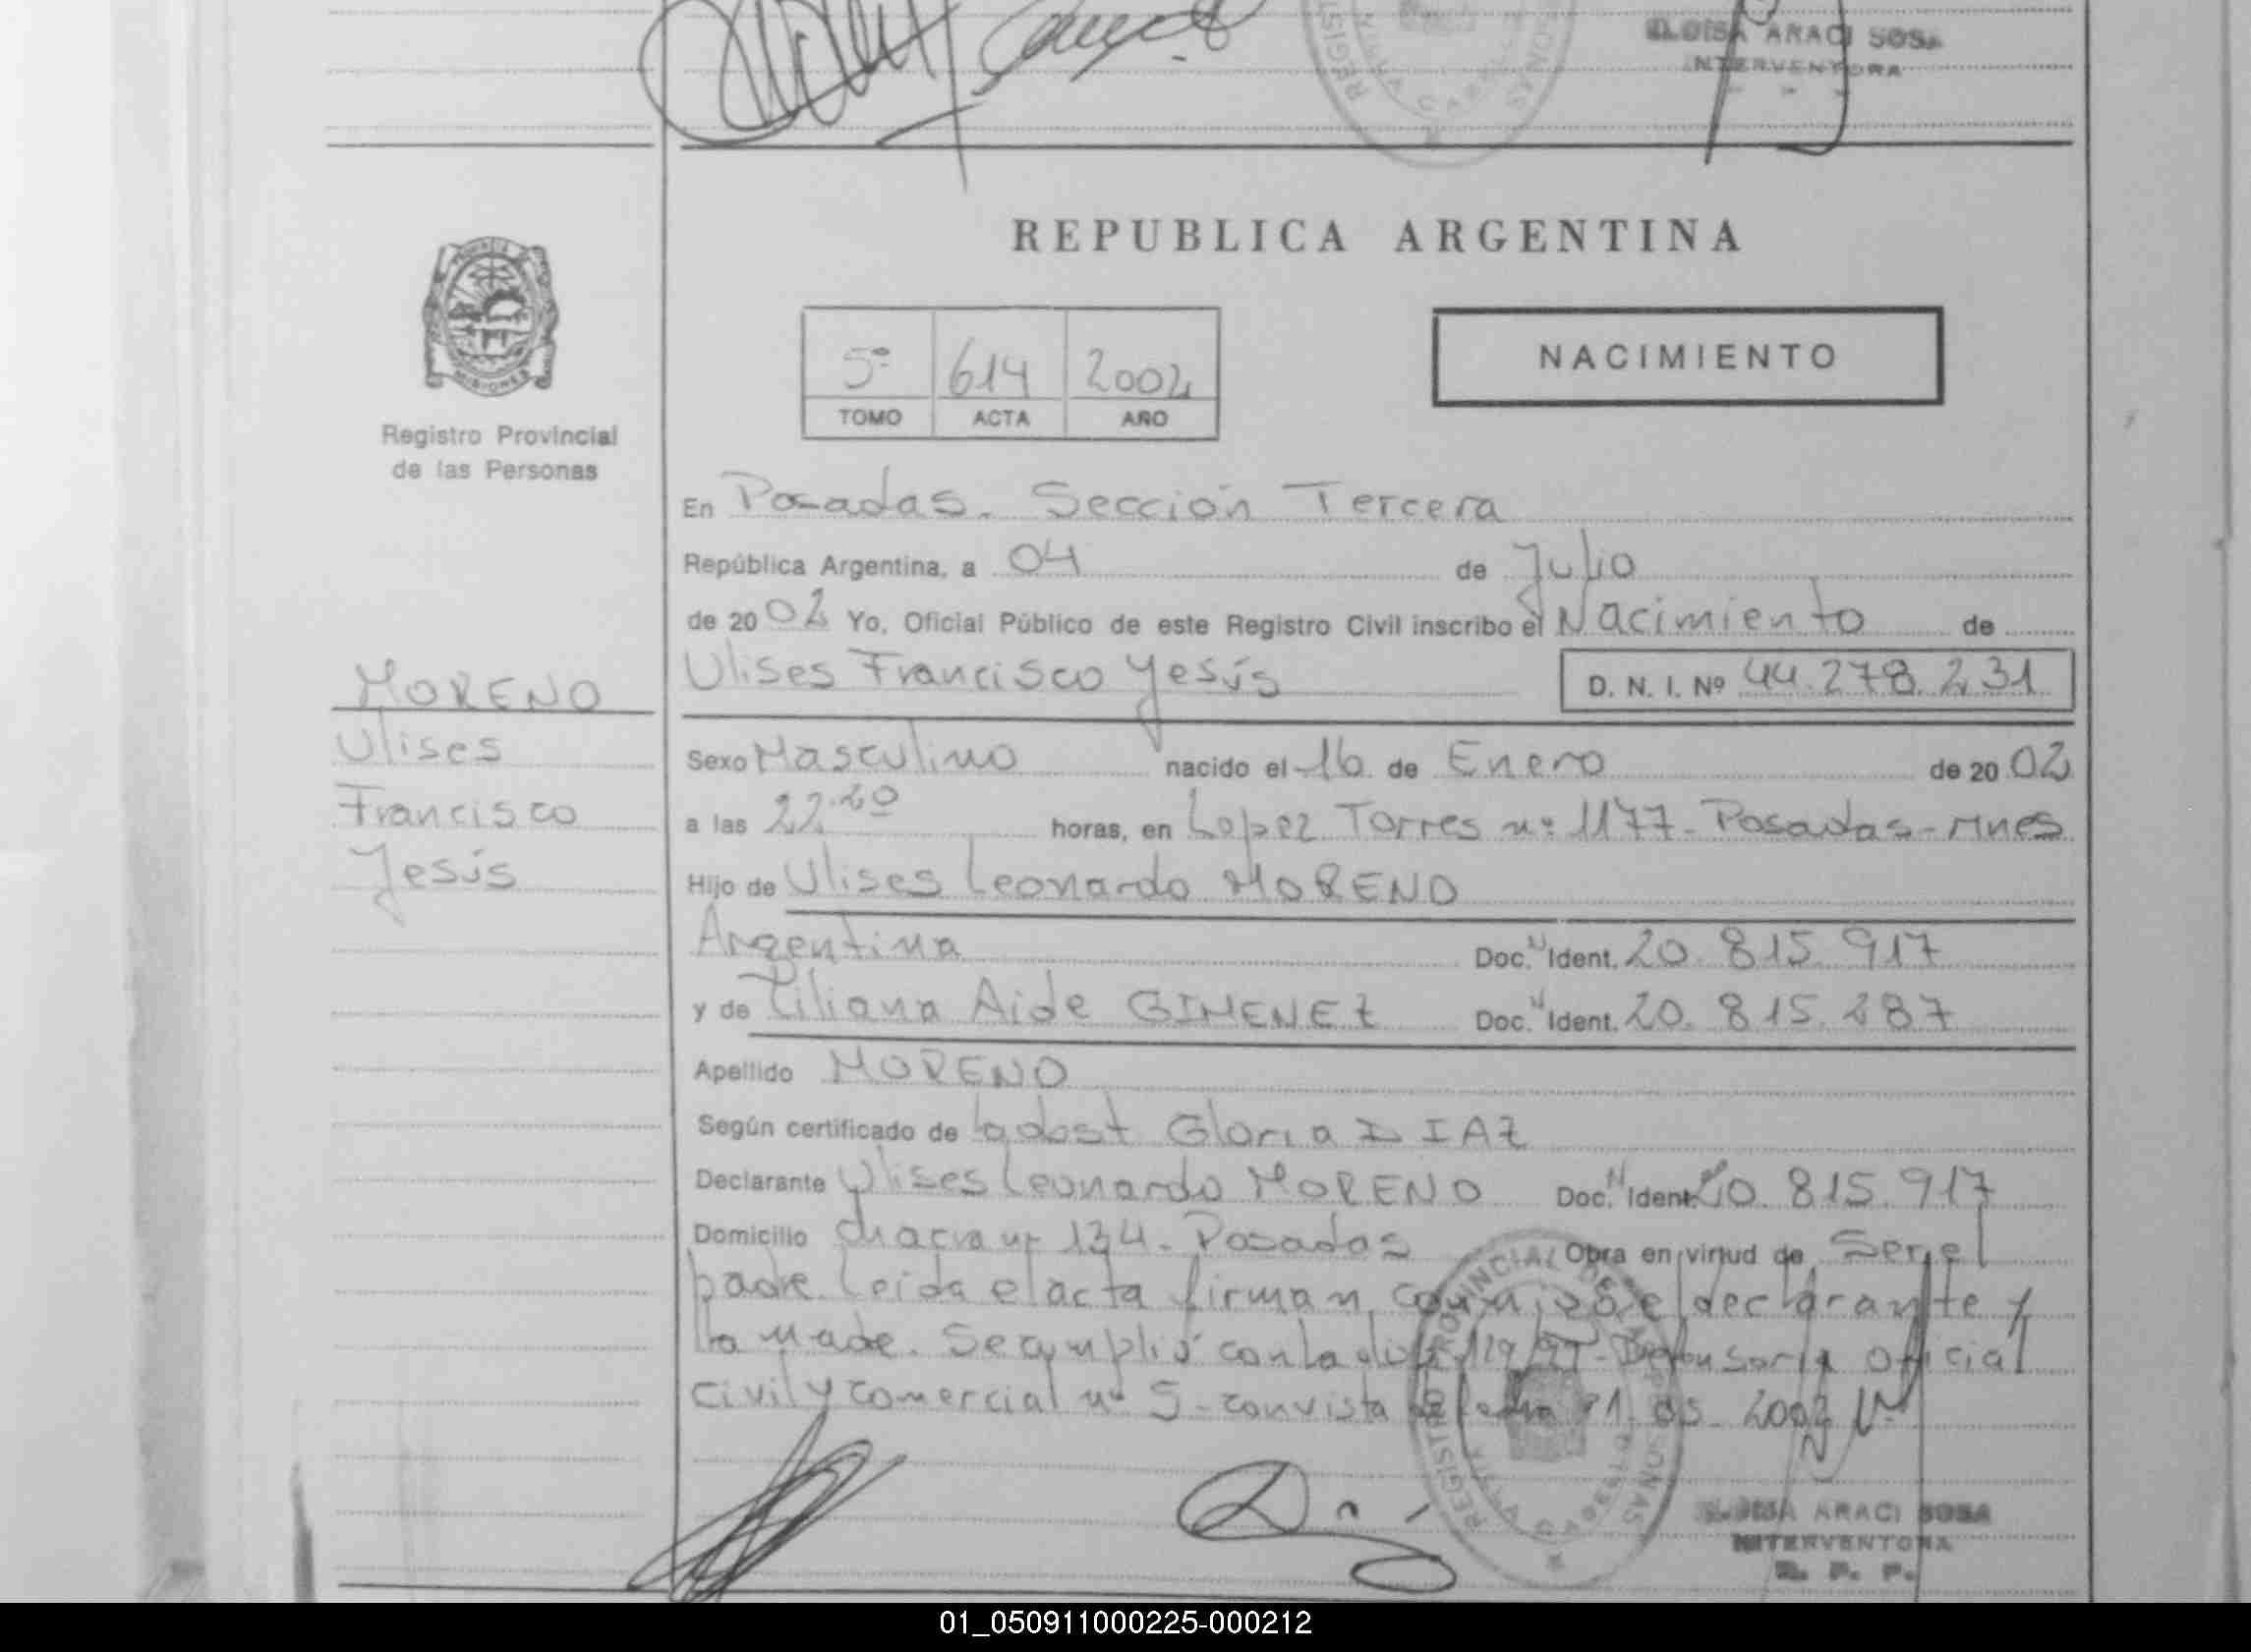 ELOISA ARACI SOSA
INTERVENTORA
REPUBLICA ARGENTINA
PROVINCIA
MISIONES
Registro Provincial
de las Personas
5º 614 2002
TOMO ACTA AÑO
NACIMIENTO
En Posadas. Sección Tercera
República Argentina, a 04 de Julio
de 20 02 Yo, Oficial Público de este Registro Civil inscribo el Nacimiento de
MORENO
Ulises Francisco Yesús D. N. I. Nº 44.278.231
Ulises
Sexo Masculino nacido el 16 de Enero de 20 02
Francisco
a las 22.20 horas, en Lopez Torres nº 1177- Posadas-Mnes
Yesús
Hijo de Ulises Leonardo MORENO
Argentina Doc. N Ident. 20.815.917
y de Liliana Aide GIMENEZ Doc. N Ident. 20.815.287
Apellido MORENO
Según certificado de la obst Gloria DIAZ
Declarante Ulises Leonardo MORENO Doc. N Ident. 20.815.917
Domicilio Chacra nº 134. Posadas Obra en virtud de Ser el
padre. Leida el acta firman conmigo el declarante y
la madre. Se cumplió con la 129/91- Defensoria Oficial
Civil y Comercial nº 5- con vista de fecha 21.05.2002
REGISTRO PROVINCIAL DE LAS PERSONAS
ELOISA ARACI SOSA
INTERVENTORA
R. P. P.
01_050911000225-000212